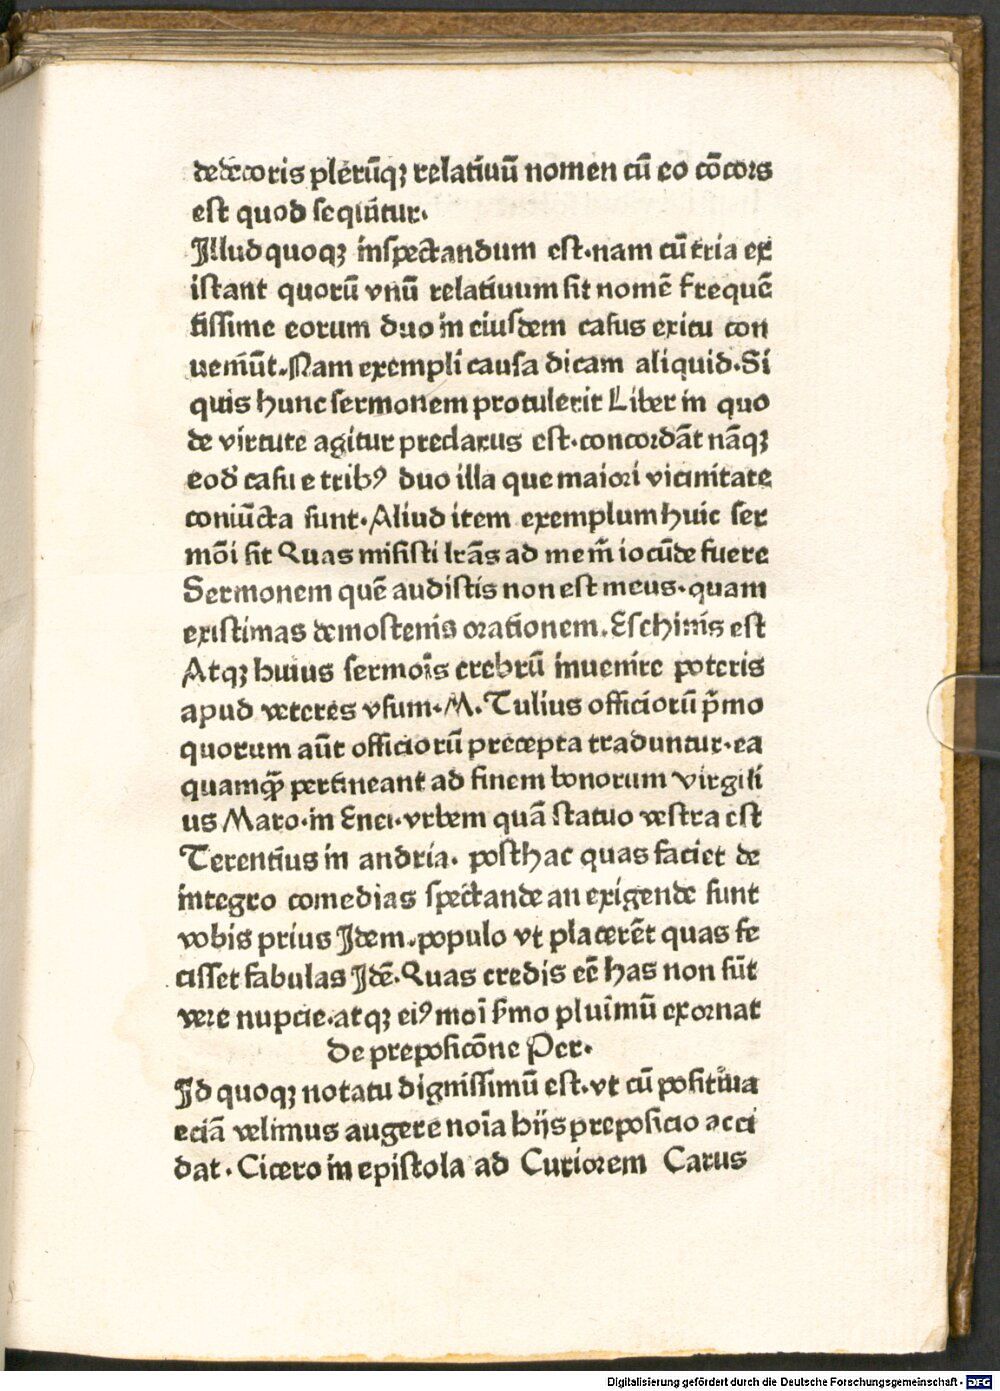 dedecoris plerūqꝫ relatiuū nomen cū eo cōcors
est quod sequūtur.
Illud quoqꝫ inspectandum est.nam cū tria ex
istant quorū vnū relatiuum sit nomē frequē
tissime eorum duo in eiusdem casus exitu con
ueniūt.Nam exempli causa dicam aliquid.Si
quis hunc sermonem protulerit Liber in quo
de virtute agitur preclarus est.concordāt nāqꝫ
eod̄ casu e tribꝰ duo illa que maiori vicinitate
coniūcta sunt.Aliud item exemplum huic ser
mōi sit Quas misisti lrās ad me m̄ iocūde fuere
Sermonem quē audistis non est meus.quam
existimas demostenis orationem.Eschinis est
Atqꝫ huius sermoīs crebrū inuenire poteris
apud veteres vsum.M.Tulius officiorū p̄mo
quorum aūt officiorū precepta traduntur.ea
quamqꝫ̄ pertineant ad finem bonorum virgili
us Maro.in Enei.vrbem quā statuo vestra est
Terentius in andria. posthac quas faciet de
integro comedias spectande an exigende sunt
vobis prius Idem.populo vt placerēt quas fe
cisset fabulas Idē.Quas credis eē has non sūt
vere nupcie.atqꝫ eiꝰ moī ẜmo pluimū exornat
De preposicōne Per.
Id quoqꝫ notatu dignissimū est.vt cū positiua
eciā velimus augere noīa hijs preposicio acci
dat. Cicero in epistola ad Curiorem Carus
Digitalisierung gefördert durch die Deutsche Forschungsgemeinschaft - DFG